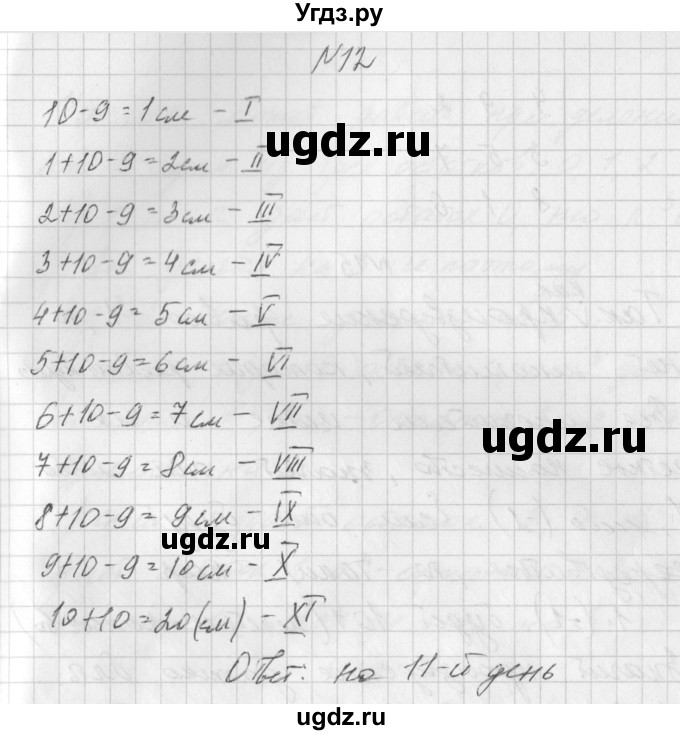 Угдз.ру
N12
10-9=1см - I
ugdz.ru
1+10-9=2см - II
2+10-9=3см - III
3+10-9=4см - IV
4+10-9=5см - V
5+10-9=6см - VI
6+10-9=7см - VII
ugdz.ru
7+10-9=8см - VIII
8+10-9=9см - IX
ugdz.ru
9+10-9=10см - X
10+10=20(см) - XI
Ответ: на 11-й день
ugdz.ru